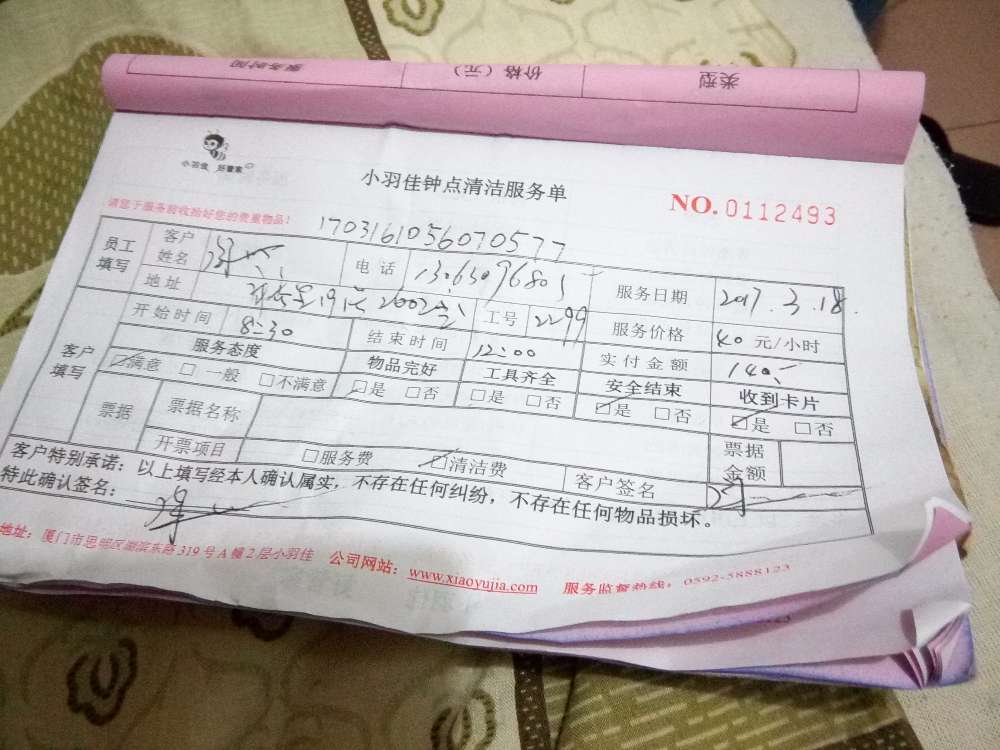 类型 价格（元） 服务时间
小羽佳 好管家
小羽佳钟点清洁服务单
NO. 0112493
请您于服务前收拾好您的贵重物品！
170316105607057７
员工填写 客户姓名 电话 服务日期 2017.3.18.
地址 2002 工号 2299 服务价格 40 元/小时
客户填写 开始时间 8:30 结束时间 12:00 实付金额 140
服务态度 物品完好 工具齐全 安全结束 收到卡片
☑满意 □一般 □不满意 ☑是 □否 □是 □否 ☑是 □否 ☑是 □否
票据 票据名称 票据金额
开票项目 □服务费 ☑清洁费 客户签名
客户特别承诺：以上填写经本人确认属实，不存在任何纠纷，不存在任何物品损坏。
特此确认签名：
地址：厦门市思明区湖滨东路319号A幢2层小羽佳 公司网站：www.xiaoyujia.com 服务监督热线：0592-5888123